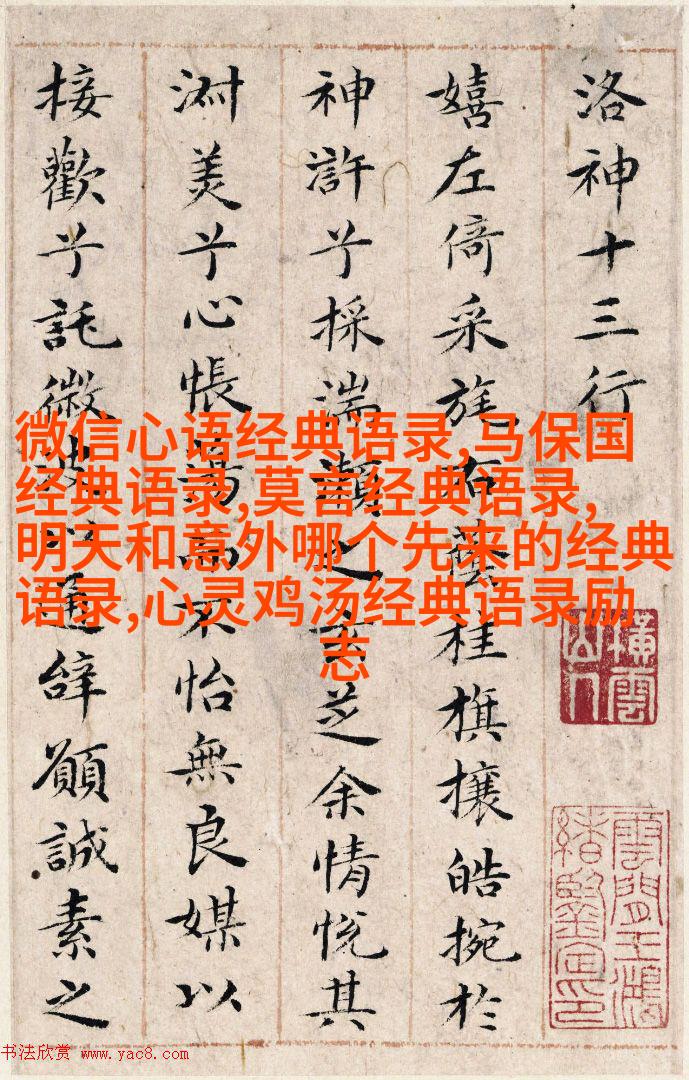 洛神十三行
嬉左倚采旄右蔭桂旗攘皓捥於
神許兮採湍瀨之玄芝余情悅其
淑美兮心悵蕩而不怡無良媒以
接歡兮託微波以通辭願誠素之
微信心语经典语录,马保国
经典语录,莫言经典语录,
明天和意外哪个先来的经典
语录,心灵鸡汤经典语录励
志
橫雲山人
雲間王鴻緒鑒定印
书法欣赏 www.yac8.com